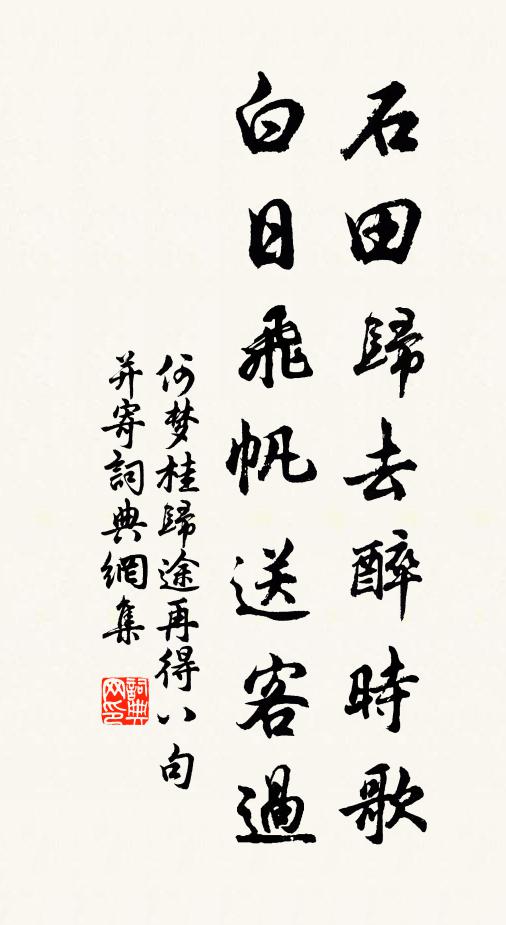 石田歸去醉時歌
白日飛帆送客過
何梦桂歸途再得八句
并寄詞典網集
詞典網印